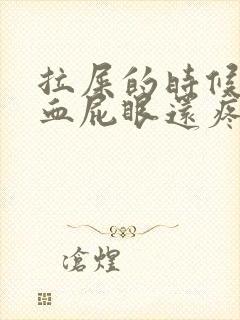 拉屎的時候
血屁眼還疼
滄煌